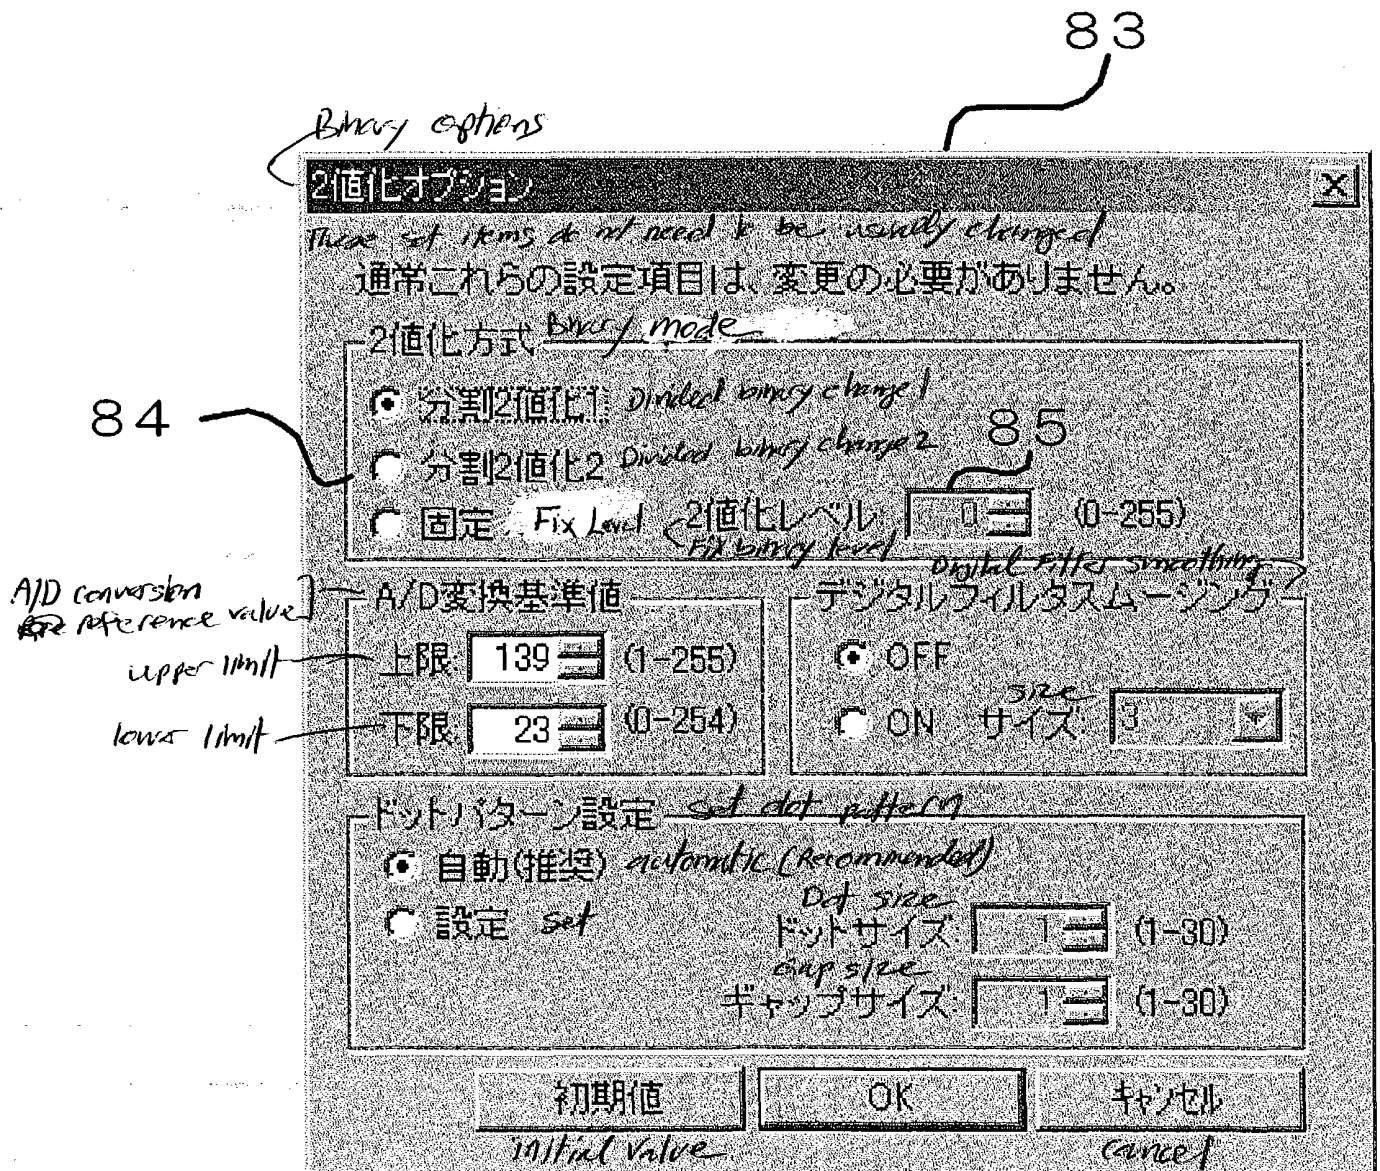 83
Binary options
2値化オプション
These set items do not need to be usually changed
通常これらの設定項目は、変更の必要がありません。
2値化方式 Binary mode
84
分割2値化1 Divided binary change 1
分割2値化2 Divided binary change 2
85
固定 Fix Level 2値化レベル: 0 (0-255)
Fix binary level
A/D conversion
reference value
A/D変換基準値
upper limit 上限: 139 (1-255)
lower limit 下限: 23 (0-254)
Digital Filter smoothing
デジタルフィルタスムージング
OFF
size
ON サイズ: 3
ドットパターン設定 set dot pattern
自動(推奨) automatic (Recommended)
設定 set
Dot size
ドットサイズ: 1 (1-30)
Gap size
ギャップサイズ: 1 (1-30)
初期値 OK キャンセル
initial value cancel